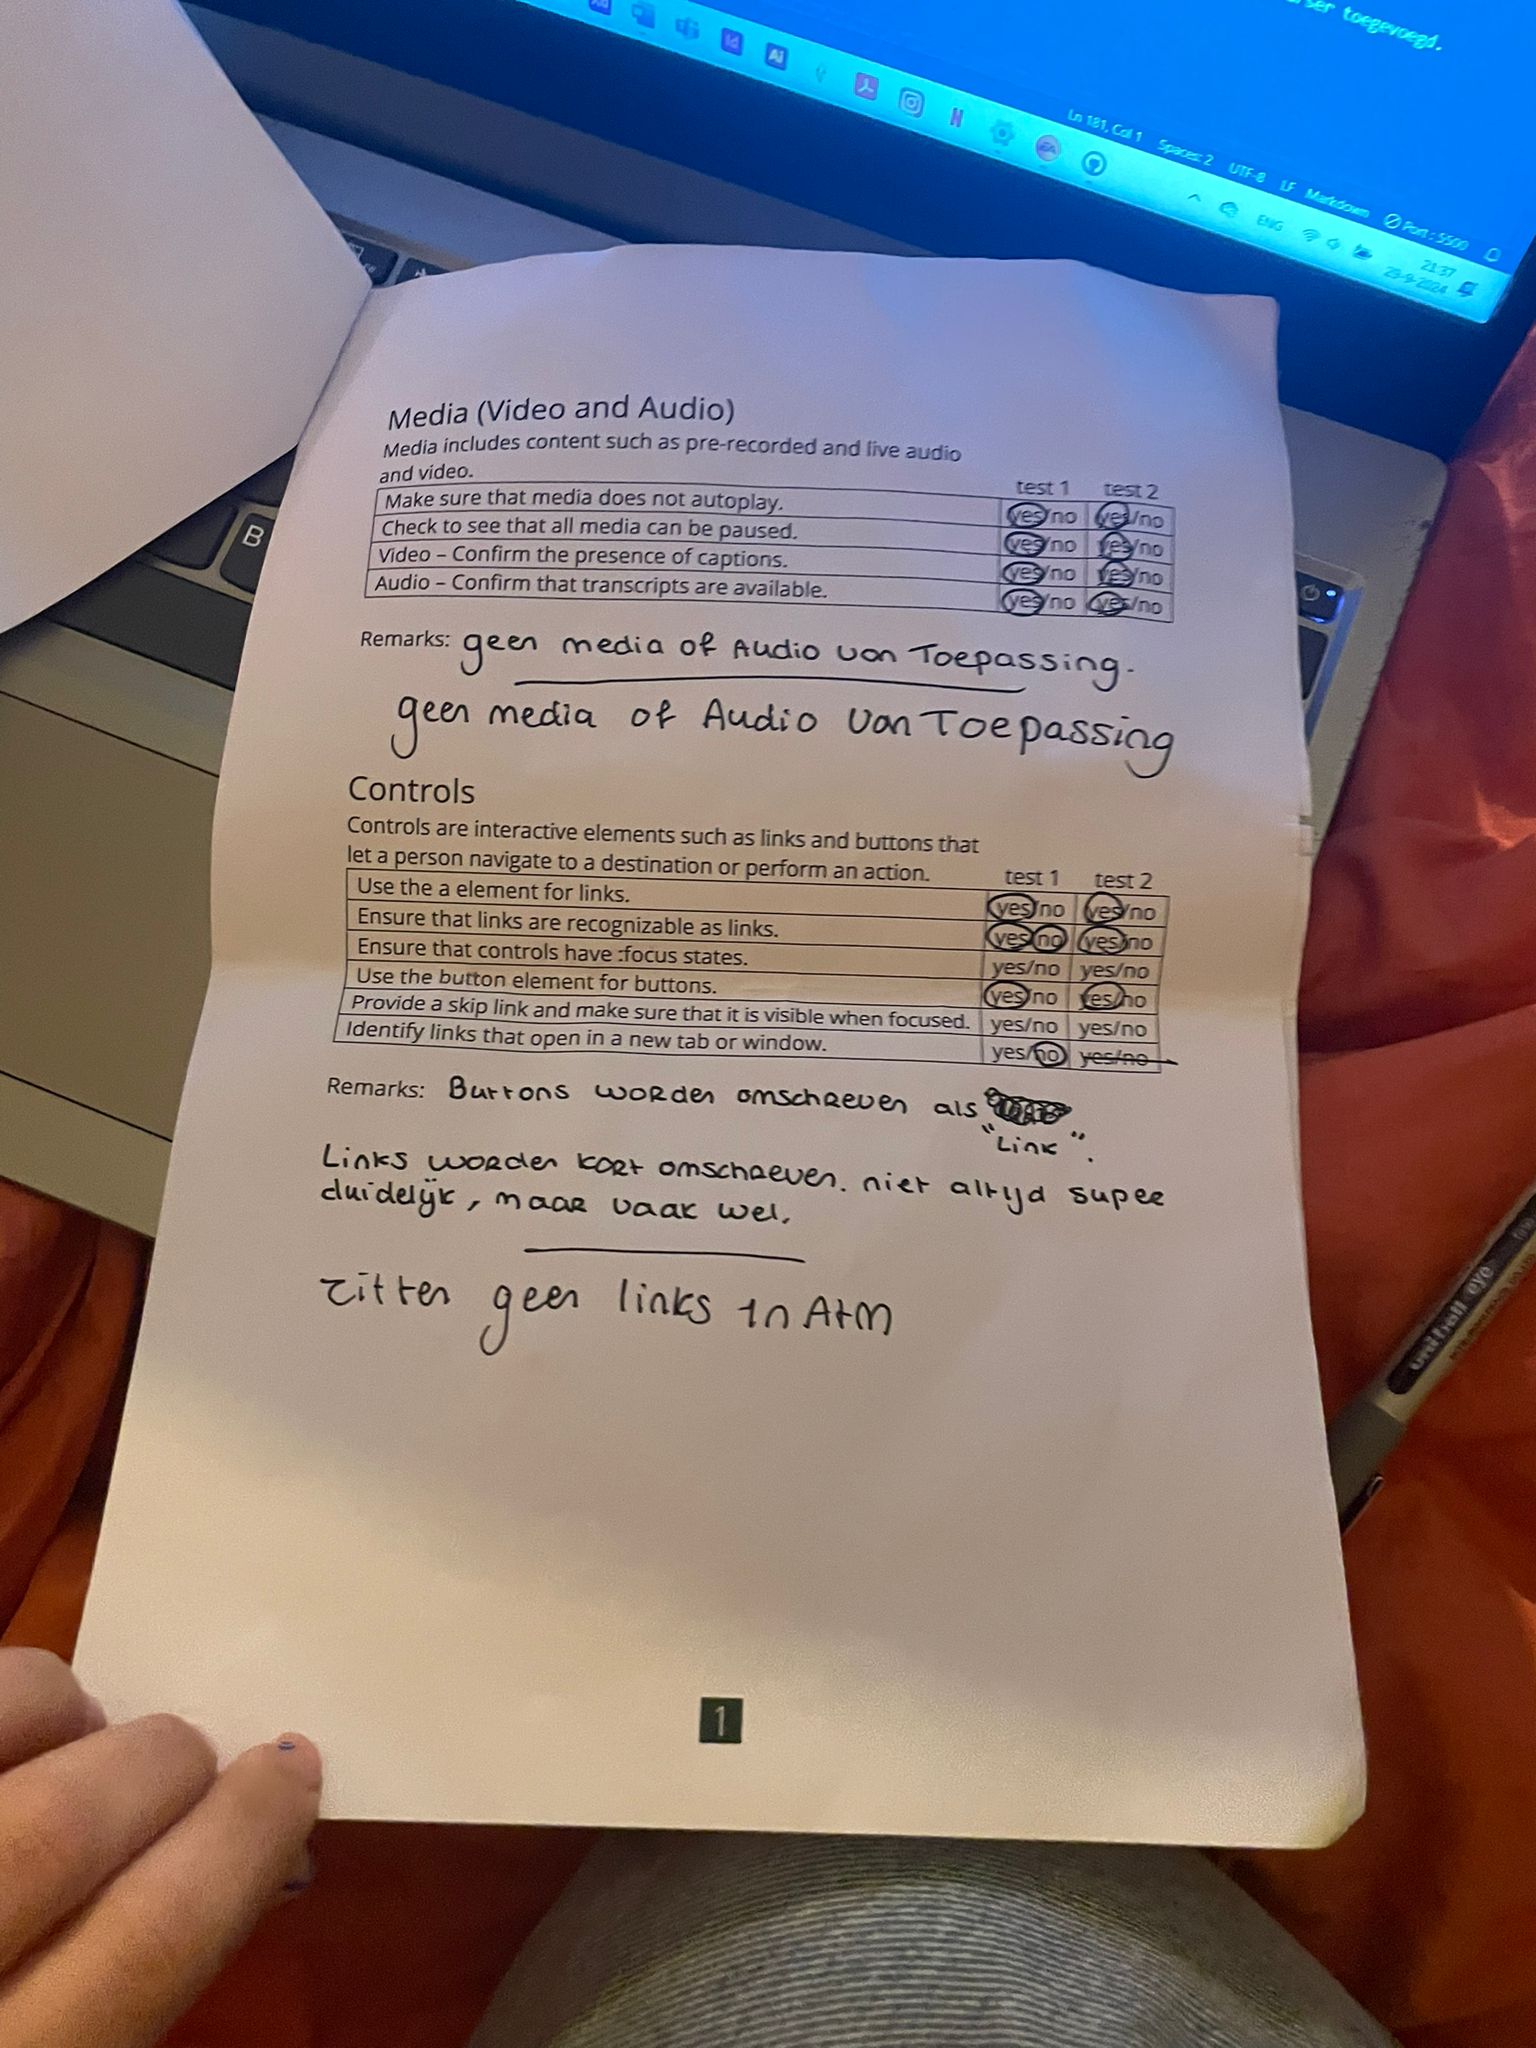 ser toegevoegd.
Ln 181, Col 1 Spaces: 2 UTF-8 LF Markdown Port : 5500
ENG 21:37
23-9-2024
B
Media (Video and Audio)
Media includes content such as pre-recorded and live audio
and video. test 1 test 2
Make sure that media does not autoplay. yes/no yes/no
Check to see that all media can be paused. yes/no yes/no
Video – Confirm the presence of captions. yes/no yes/no
Audio – Confirm that transcripts are available. yes/no yes/no
Remarks: geen media of Audio van Toepassing.
geen media of Audio van Toepassing
Controls
Controls are interactive elements such as links and buttons that
let a person navigate to a destination or perform an action. test 1 test 2
Use the a element for links. yes/no yes/no
Ensure that links are recognizable as links. yes/no yes/no
Ensure that controls have :focus states. yes/no yes/no
Use the button element for buttons. yes/no yes/no
Provide a skip link and make sure that it is visible when focused. yes/no yes/no
Identify links that open in a new tab or window. yes/no yes/no
Remarks: Buttons worden omschreven als
"Link".
Links worden kort omschreven. niet altijd super
duidelijk, maar vaak wel.
zitten geen links in Atm
1
uniball eye